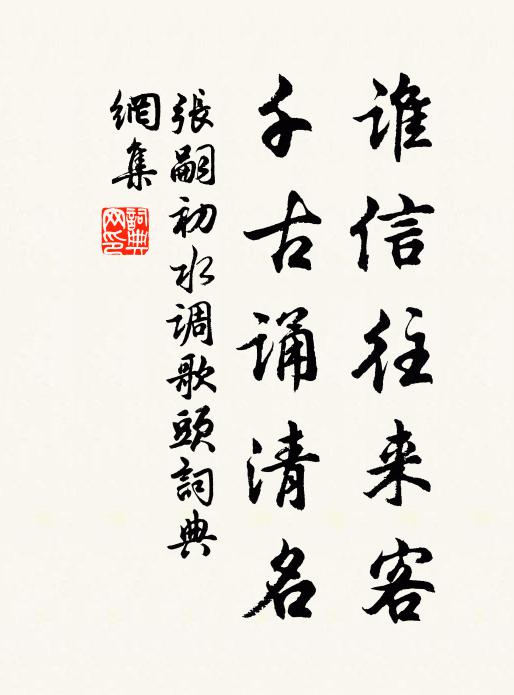 谁信往来客
千古诵清名
張嗣初水调歌頭詞典
網集
詞典
网印